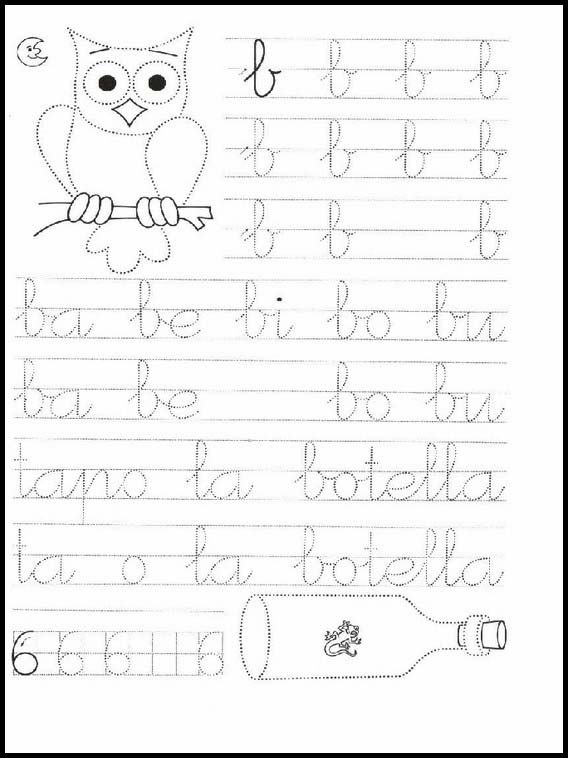 b b b b
b b b b
b b b
ba be bi bo bu
ba be bo bu
tapo la botella
ta o la botella
6 6 6 6